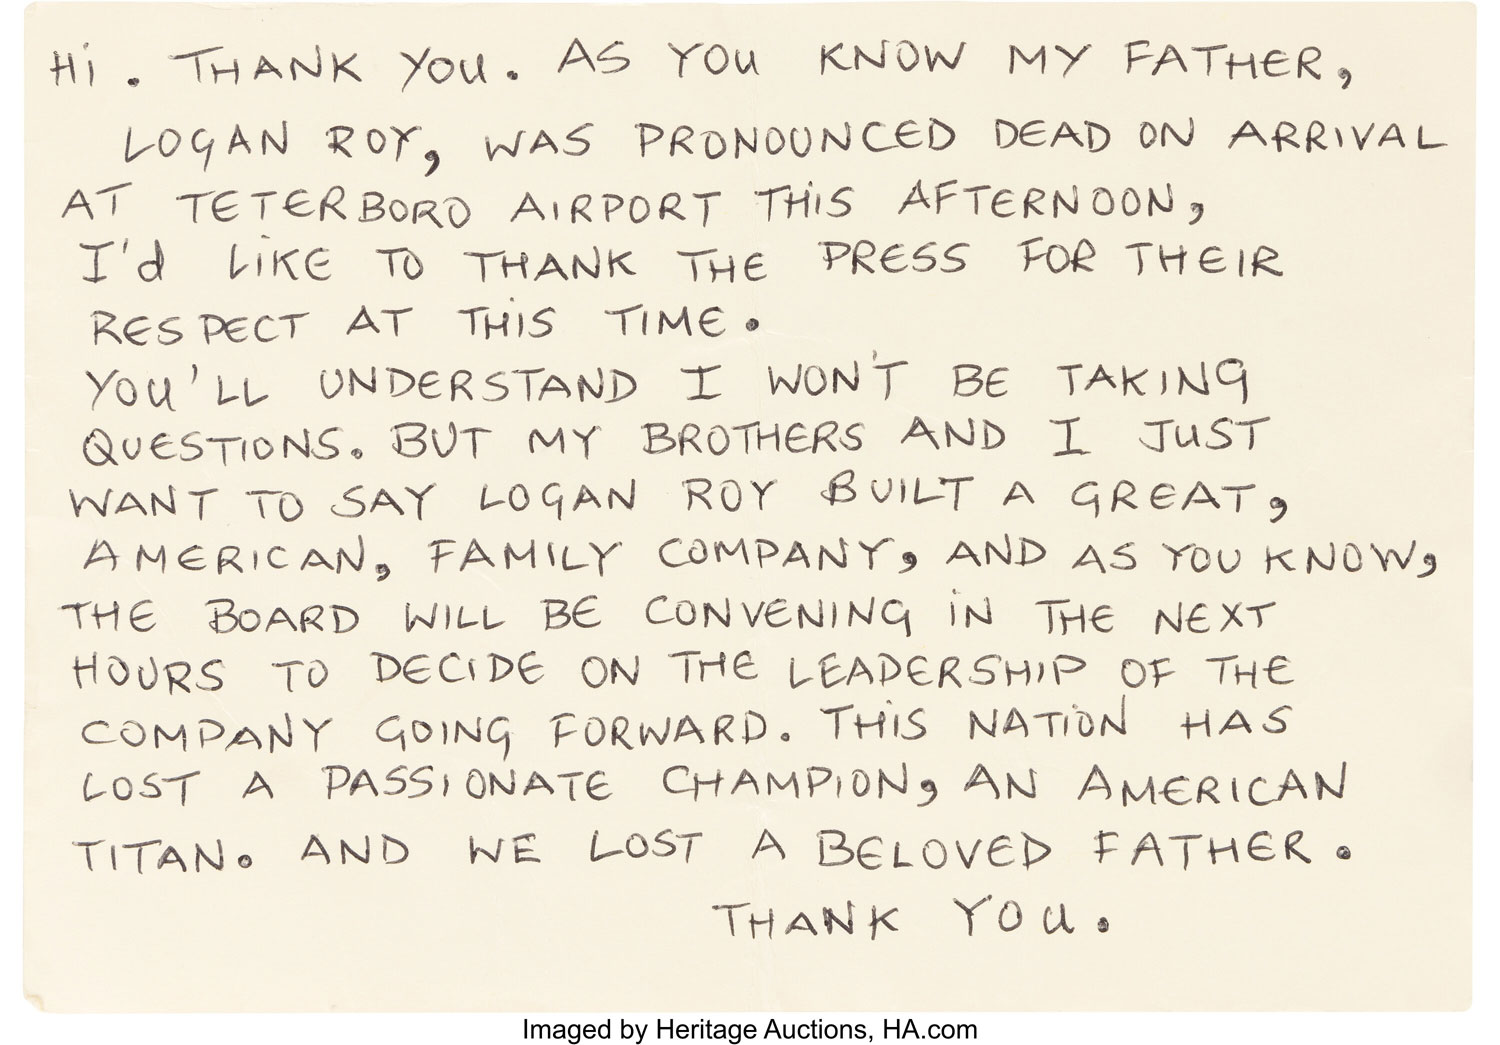 Hi. THANK YOU. AS YOU KNOW MY FATHER,
LOGAN ROY, WAS PRONOUNCED DEAD ON ARRIVAL
AT TETERBORO AIRPORT THIS AFTERNOON,
I'd LIKE TO THANK THE PRESS FOR THEIR
RESPECT AT THIS TIME.
YOU'LL UNDERSTAND I WON'T BE TAKING
QUESTIONS. BUT MY BROTHERS AND I JUST
WANT TO SAY LOGAN ROY BUILT A GREAT,
AMERICAN, FAMILY COMPANY, AND AS YOU KNOW,
THE BOARD WILL BE CONVENING IN THE NEXT
HOURS TO DECIDE ON THE LEADERSHIP OF THE
COMPANY GOING FORWARD. THIS NATION HAS
LOST A PASSIONATE CHAMPION, AN AMERICAN
TITAN. AND WE LOST A BELOVED FATHER.
THANK YOU.
Imaged by Heritage Auctions, HA.com